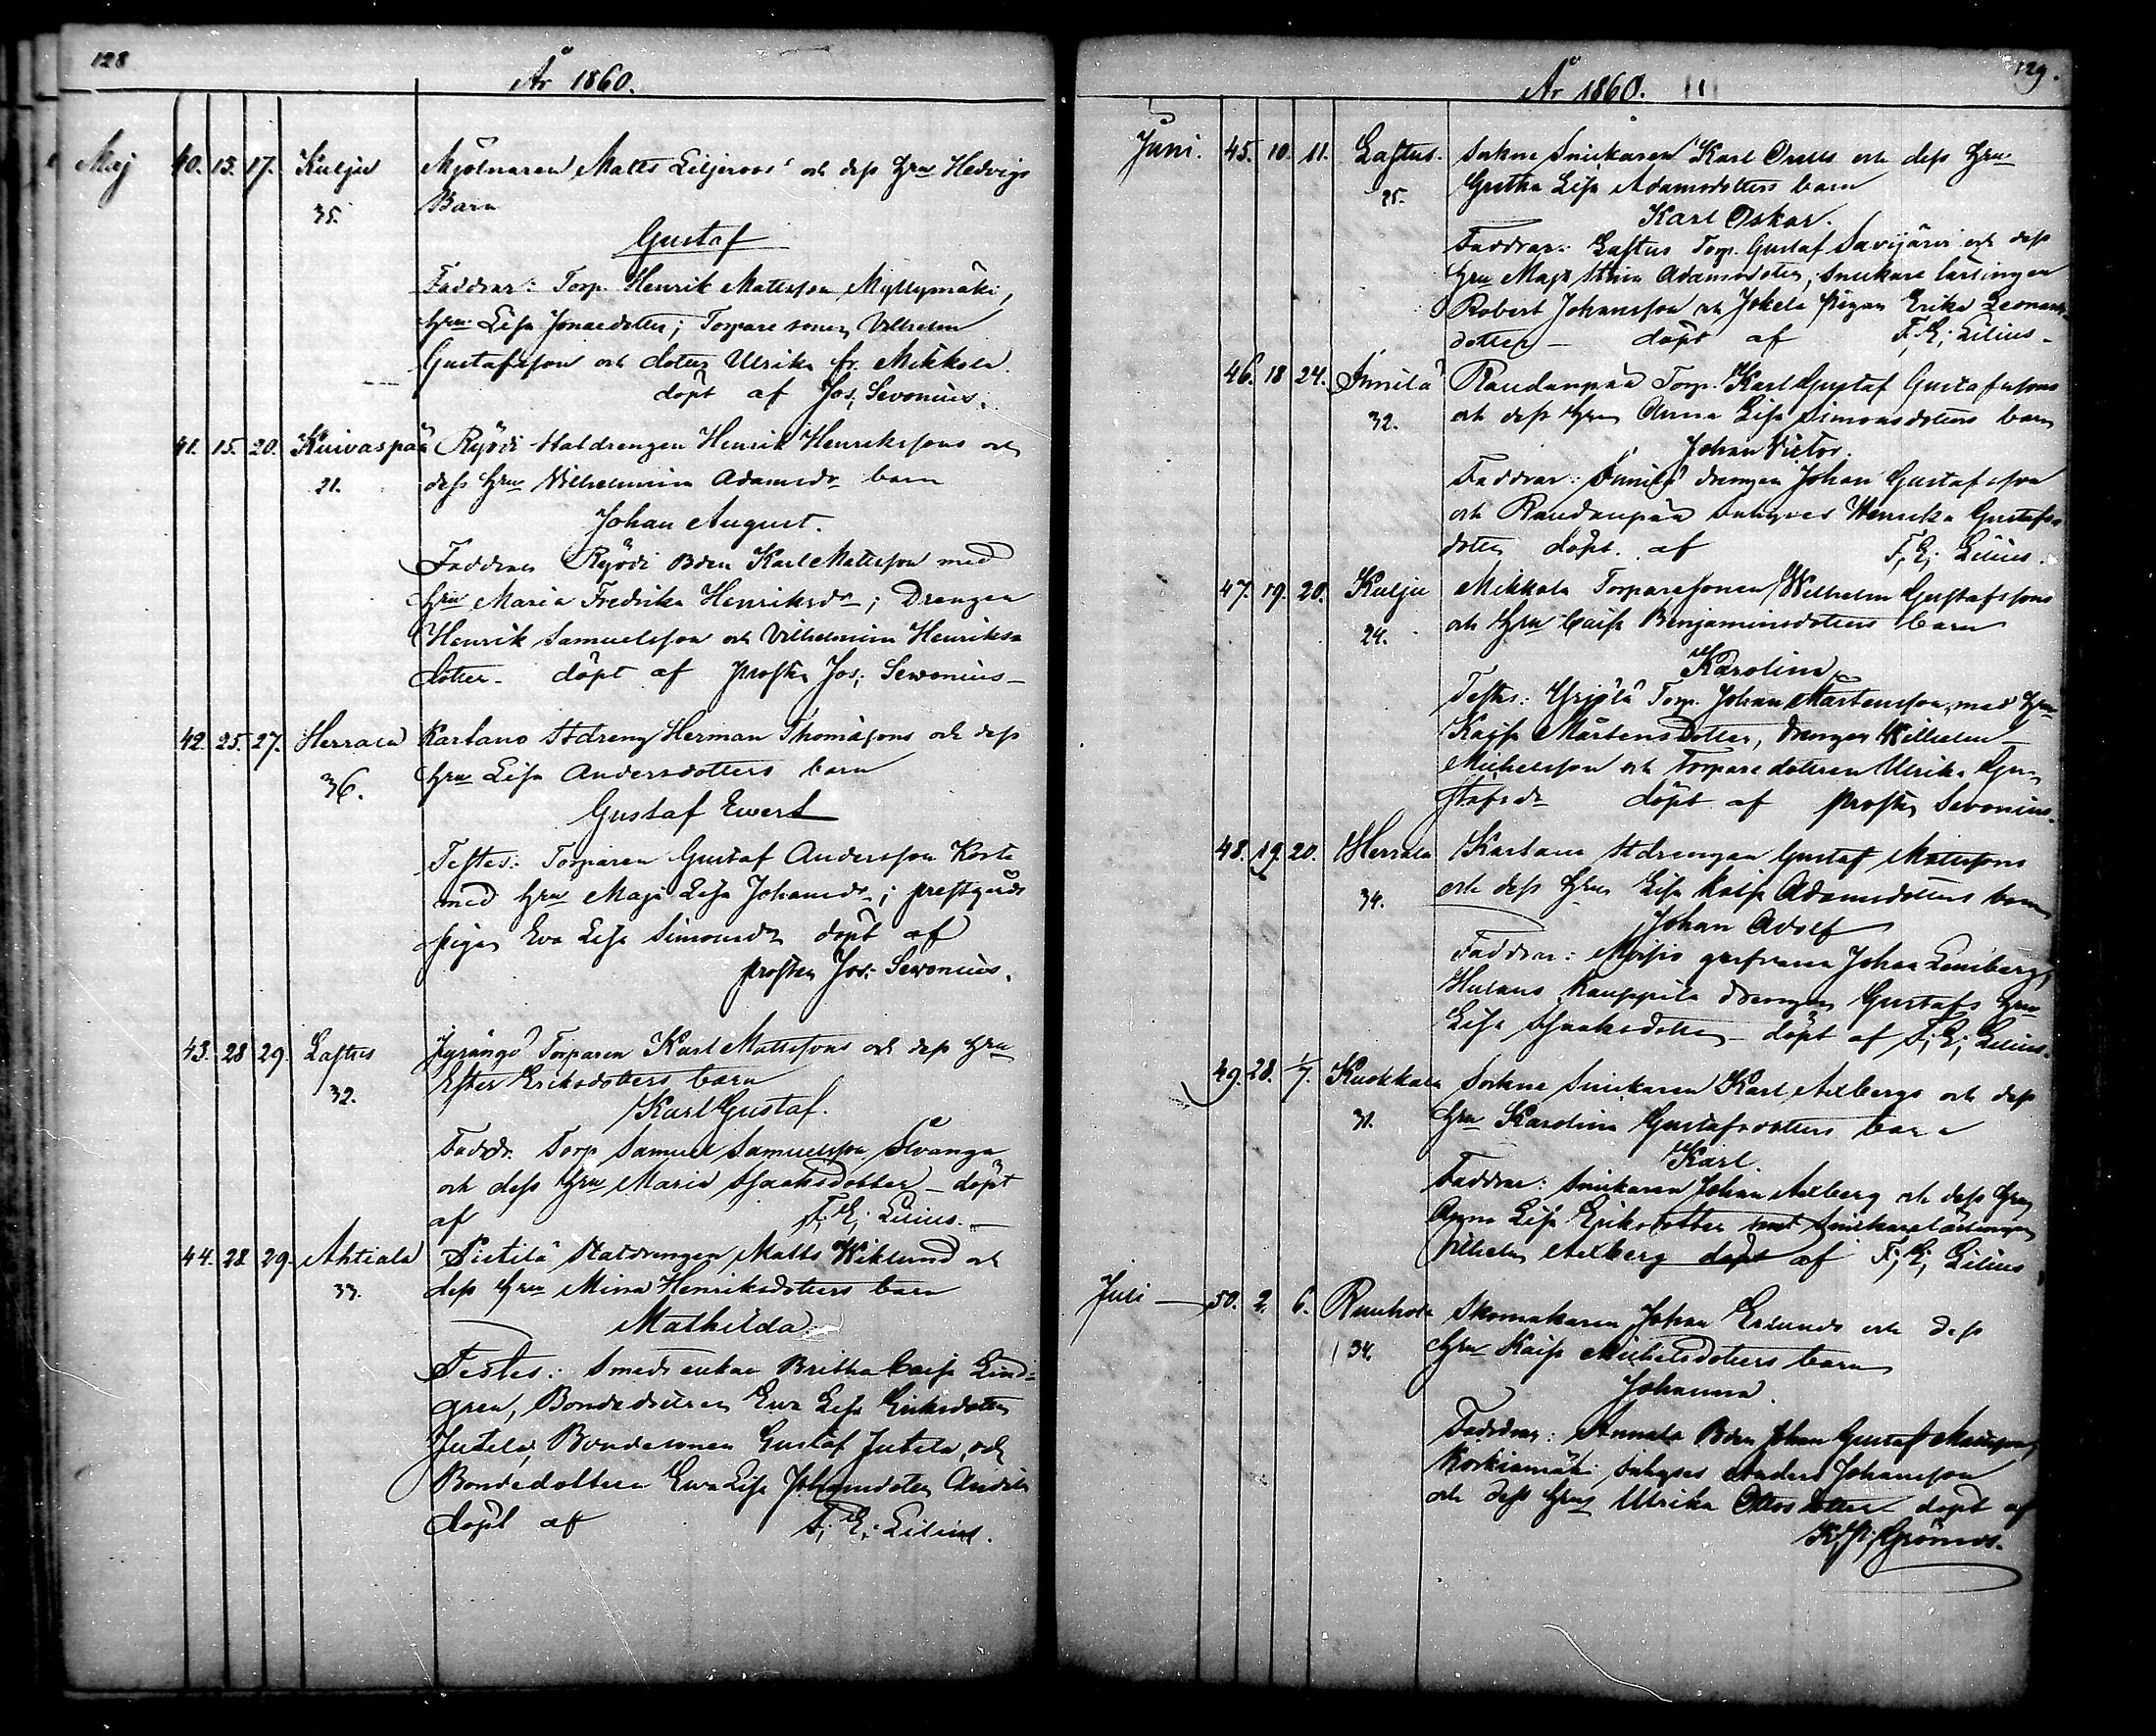 128
År 1860.
Maj 40. 15. 17. Kulju Mjölnaren Matts Liljeroos' och dess hru Hedvigs
35. Barn
Gustaf
Faddrar: Torp. Henrik Mattsson Myllymäki,
hru Lisa Jonaedotter; Torpare sonen Vilhelm
Gustafsson och dotter Ulrika fr. Mikkola
döpt af Jos; Sevonius.
41. 15. 20. Kuivaspää Ryödi Staldrengen Henrik Henrikssons och
21. dess hru Vilhelmina Adamsdr barn
Johan August.
Faddrar Ryödi Bden Karl Mattsson med
hru Maria Fredrika Henriksdr; Drengen
Henrik Samuelsson och Vilhelmina Henriks
dotter. döpt af prosten Jos; Sevonius
42. 25. 27. Herrala Kartano Stdreng Herman Thomassons och dess
36. hru Lisa Andersdotters barn
Gustaf Evert
Testes: Torparen Gustaf Andersson
med hru Maja Lisa Johansdr; prestgårds
pigan Eva Lisa Simonsdr döpt af
prosten Jos: Sevonius.
43. 28 29. Laftus Torparen Karl Mattssons och dess hru
32. Ester Eriksdotters barn
Karl Gustaf.
Faddr. Torp Samuel Samuelsson
och dess hru Maria Isaaksdotter – döpt
af F; E; Lilius.
44. 28 29. Ahtiala Pietilä Staldrengen Matts Wiklund och
33. dess hru Mina Henriksdotters barn
Mathilda
Testes: Smeds enkan Britha Caisa Lind-
gren, Eva Lisa Eriksdotter
Jutela, Bondesonen Gustaf Jutela, och
Bondedottren Eva Lisa Johansdotter
döpt af F; E; Lilius.
129.
År 1860.
Juni. 45. 10. 11. Laftus. Sockne Snickaren Karl och dess hru
25. Gretha Lisa Adamsdotters barn
Karl Oskar.
Faddrar: Laftus Torp. Gustaf Savijärvi och dess
hru Maja Stina Adamsdotter, Snickare lärlingen
Robert Johansson och Jokela pigan Erika Leonards
dotter – döpt af F; E; Lilius.
46. 18 24. Raudanpää Torp. Karl Gustaf Gustafssons
32. och dess hru Anna Lisa Simonsdotters barn
Johan Victor.
Faddrar: drengen Johan Gustafsson
och Raudanpää Inhyses Henrika Gustafs
dotter döpt af F; E; Lilius.
47. 19. 20. Kulju Mikkola Torparesonen Wilhelm Gustafssons
24. och hru Caisa Benjaminsdotters barn
Karolina
Testes: Yrjölä Torp. Johan Mårtensson, med hru
Kajsa Mårtensdotter, drengen Wilhelm
Michelsson och Torparedottren Ulrika Gu
stafsdr döpt af prosten Sevonius.
48. 19. 20. Herrala Kartano Stdrengen Gustaf Mattssons
34. och dess hru Lisa Kaisa Adamsdotters barn
Johan Adolf
Faddrar: Johan Leniberg,
Kauppila drengen Gustafs hru
Lisa Isaaksdotter – döpt af F; E; Lilius.
49. 28. 1/7. Kuokkala Sockne Snickaren Karl Axbergs och dess
31. hru Karolina Gustafsdotters barn
Karl.
Faddrar: Snickaren Johan Axberg och dess hru
Anna Lisa Eriksdotter samt Snickarelärlingen
Vilhelm Axberg döpt af F; E; Lilius
Juli 50. 2. 6. Ruuhola Skomakaren Johan Erlunds och dess
34. hru Kaisa Michelsdotters barn
Johanna.
Faddrar: Annala Bden Johan Gustaf Mattsson,
Korkiamäki Inhyses Anders Johansson
och dess hru Ulrika Ottosdotter döpt af
K; Grönroos.